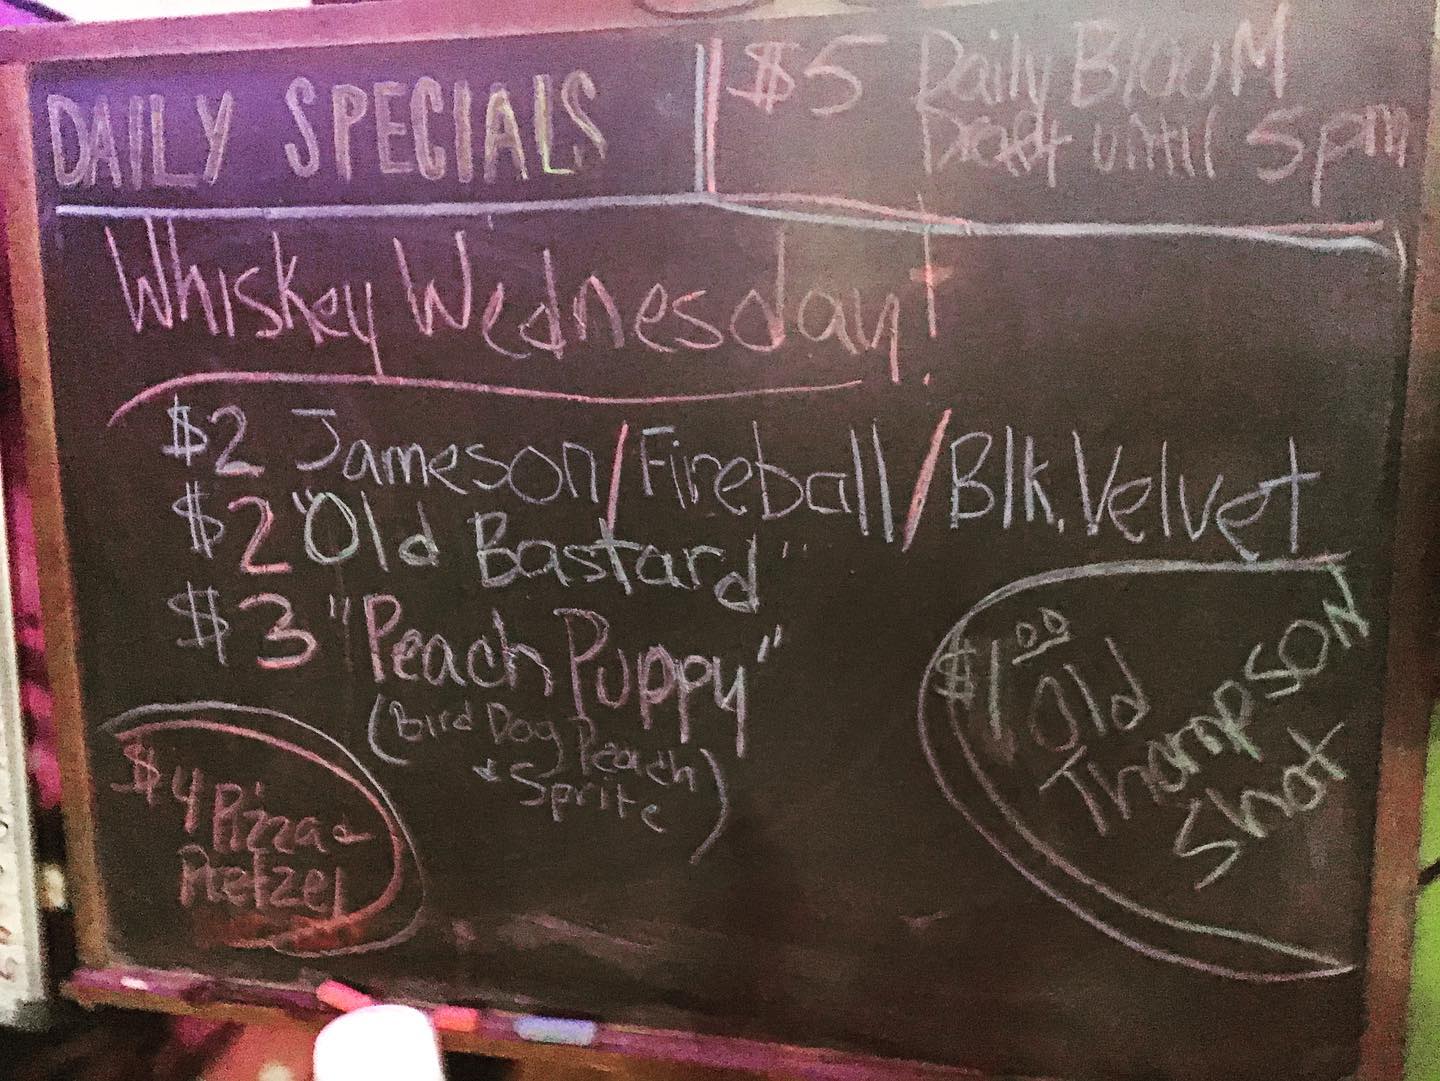 DAILY SPECIALS
$5 Daily Bloom
Draft until 5pm
Whiskey Wednesday!
$2 Jameson/Fireball/Blk. Velvet
$2 "Old Bastard"
$3 "Peach Puppy"
(Bird Dog Peach
+ Sprite)
$4 Pizza +
Pretzel
$1.00
Old
Thompson
Shot